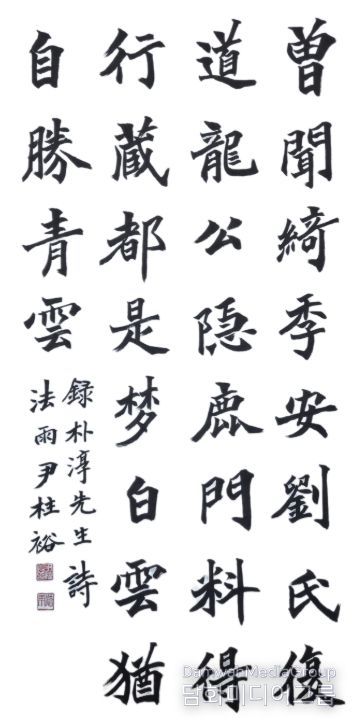 曽聞綺季安劉氏復
道龍公隠鹿門料得
行蔵都是梦白雲猶
自勝青雲
録朴淳先生詩
法雨尹柱裕
DamwonMediaGroup
담원미디어그룹